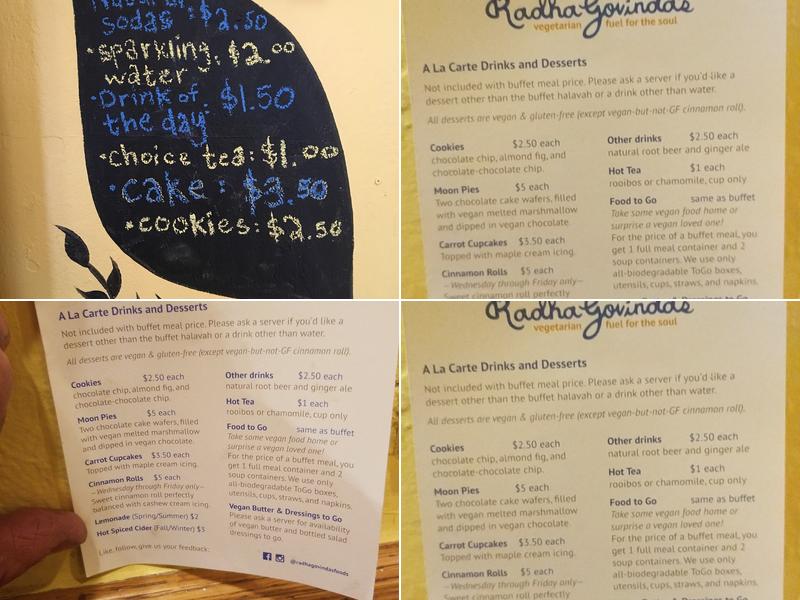 Natural
sodas :$2.50
•sparkling: $2.00
water
•Drink of : $1.50
the day
•choice tea: $1.00
•cake : $3.50
•cookies: $2.50
Radha Govindas
vegetarian fuel for the soul
A La Carte Drinks and Desserts
Not included with buffet meal price. Please ask a server if you'd like a
dessert other than the buffet halavah or a drink other than water.
All desserts are vegan & gluten-free (except vegan-but-not-GF cinnamon roll).
Cookies $2.50 each
chocolate chip, almond fig, and
chocolate-chocolate chip.
Moon Pies $5 each
Two chocolate cake wafers, filled
with vegan melted marshmallow
and dipped in vegan chocolate.
Carrot Cupcakes $3.50 each
Topped with maple cream icing.
Cinnamon Rolls $5 each
—Wednesday through Friday only—
Sweet cinnamon roll perfectly
Other drinks $2.50 each
natural root beer and ginger ale
Hot Tea $1 each
rooibos or chamomile, cup only
Food to Go same as buffet
Take some vegan food home or
surprise a vegan loved one!
For the price of a buffet meal, you
get 1 full meal container and 2
soup containers. We use only
all-biodegradable ToGo boxes,
utensils, cups, straws, and napkins.
A La Carte Drinks and Desserts
Not included with buffet meal price. Please ask a server if you'd like a
dessert other than the buffet halavah or a drink other than water.
All desserts are vegan & gluten-free (except vegan-but-not-GF cinnamon roll).
Cookies $2.50 each
chocolate chip, almond fig, and
chocolate-chocolate chip.
Moon Pies $5 each
Two chocolate cake wafers, filled
with vegan melted marshmallow
and dipped in vegan chocolate.
Carrot Cupcakes $3.50 each
Topped with maple cream icing.
Cinnamon Rolls $5 each
—Wednesday through Friday only—
Sweet cinnamon roll perfectly
balanced with cashew cream icing.
Lemonade (Spring/Summer) $2
Hot Spiced Cider (Fall/Winter) $3
Other drinks $2.50 each
natural root beer and ginger ale
Hot Tea $1 each
rooibos or chamomile, cup only
Food to Go same as buffet
Take some vegan food home or
surprise a vegan loved one!
For the price of a buffet meal, you
get 1 full meal container and 2
soup containers. We use only
all-biodegradable ToGo boxes,
utensils, cups, straws, and napkins.
Vegan Butter & Dressings to Go
Please ask a server for availability
of vegan butter and bottled salad
dressings to go.
Like, follow, give us your feedback:
@radhagovindasfoods
Radha Govindas
vegetarian fuel for the soul
A La Carte Drinks and Desserts
Not included with buffet meal price. Please ask a server if you'd like a
dessert other than the buffet halavah or a drink other than water.
All desserts are vegan & gluten-free (except vegan-but-not-GF cinnamon roll).
Cookies $2.50 each
chocolate chip, almond fig, and
chocolate-chocolate chip.
Moon Pies $5 each
Two chocolate cake wafers, filled
with vegan melted marshmallow
and dipped in vegan chocolate.
Carrot Cupcakes $3.50 each
Topped with maple cream icing.
Cinnamon Rolls $5 each
—Wednesday through Friday only—
Sweet cinnamon roll perfectly
Other drinks $2.50 each
natural root beer and ginger ale
Hot Tea $1 each
rooibos or chamomile, cup only
Food to Go same as buffet
Take some vegan food home or
surprise a vegan loved one!
For the price of a buffet meal, you
get 1 full meal container and 2
soup containers. We use only
all-biodegradable ToGo boxes,
utensils, cups, straws, and napkins.